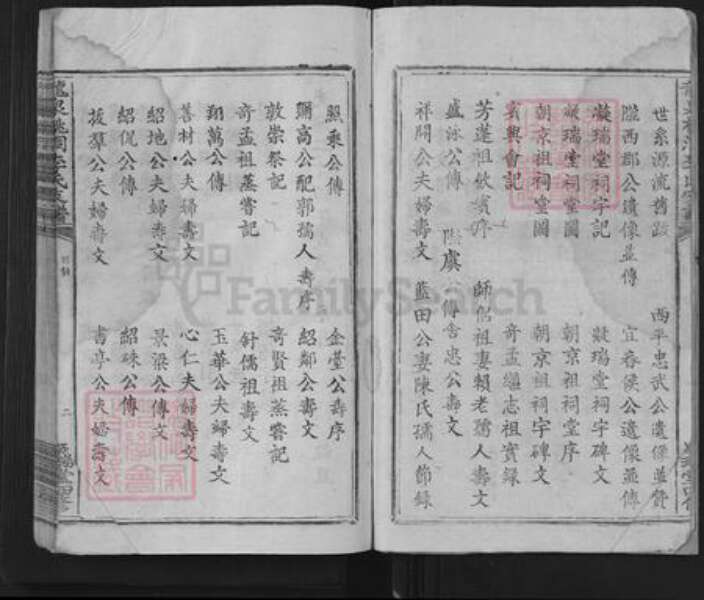 世系源流舊跋
西平忠武公遺像並贊
隴西郡公遺像並傳
宜春侯公遺像並傳
凝瑞堂祠宇記
凝瑞堂祠宇碑文
凝瑞堂祠堂圖
朝京祖祠堂序
朝京祖祠堂圖
朝京祖祠宇碑文
賓興會記
奇孟繼志祖實錄
芳蓮祖飲賓序
師侶祖妻賴老孺人壽文
盛泳公傳
際虞公傳
舍忠公壽文
祥開公夫婦壽文
藍田公妻陳氏孺人節錄
照乘公傳
金堂公壽序
彌高公配郭孺人壽序
紹鄰公壽文
敦崇祭記
奇賢祖蒸嘗記
奇孟祖蒸嘗記
針儒祖壽文
翔萬公傳
玉華公夫婦壽文
善材公夫婦壽文
心仁夫婦壽文
紹地公夫婦壽文
景梁公傳文
紹侃公傳
韶砆公傳
拔羣公夫婦壽文
書亭公夫婦壽文
二
FamilySearch